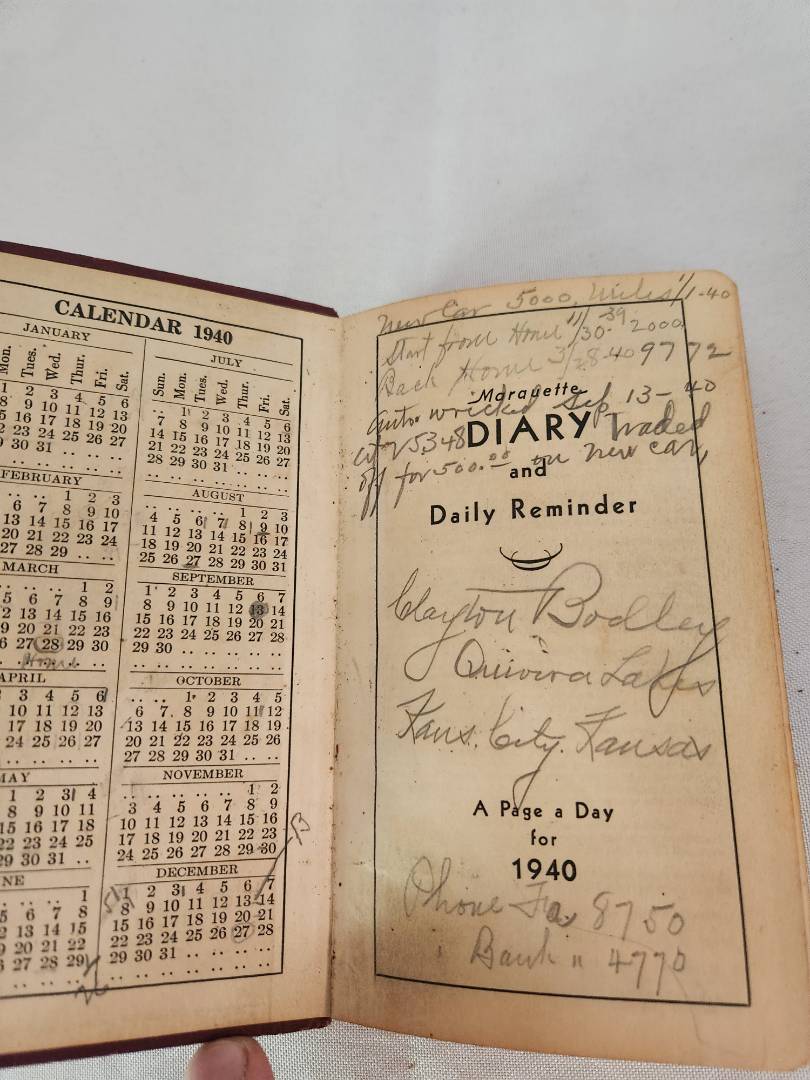 CALENDAR 1940
JANUARY
Mon. Tues. Wed. Thur. Fri. Sat.
1 2 3 4 5 6
8 9 10 11 12 13
15 16 17 18 19 20
22 23 24 25 26 27
29 30 31 .. .. ..
FEBRUARY
.. .. .. 1 2 3
6 7 8 9 10
13 14 15 16 17
20 21 22 23 24
27 28 29 .. ..
MARCH
.. .. .. .. 1 2
5 6 7 8 9
12 13 14 15 16
19 20 21 22 23
26 27 28 29 30
Home
APRIL
2 3 4 5 6
10 11 12 13
17 18 19 20
24 25 26 27
MAY
1 2 3 4
8 9 10 11
15 16 17 18
22 23 24 25
29 30 31 ..
JUNE
.. .. .. .. 1
5 6 7 8
12 13 14 15
19 20 21 22
26 27 28 29
JULY
Sun. Mon. Tues. Wed. Thur. Fri. Sat.
.. 1 2 3 4 5 6
7 8 9 10 11 12 13
14 15 16 17 18 19 20
21 22 23 24 25 26 27
28 29 30 31 .. .. ..
AUGUST
.. .. .. .. 1 2 3
4 5 6 7 8 9 10
11 12 13 14 15 16 17
18 19 20 21 22 23 24
25 26 27 28 29 30 31
SEPTEMBER
1 2 3 4 5 6 7
8 9 10 11 12 13 14
15 16 17 18 19 20 21
22 23 24 25 26 27 28
29 30 .. .. .. .. ..
OCTOBER
.. .. 1 2 3 4 5
6 7 8 9 10 11 12
13 14 15 16 17 18 19
20 21 22 23 24 25 26
27 28 29 30 31 .. ..
NOVEMBER
.. .. .. .. .. 1 2
3 4 5 6 7 8 9
10 11 12 13 14 15 16
17 18 19 20 21 22 23
24 25 26 27 28 29 30
DECEMBER
1 2 3 4 5 6 7
8 9 10 11 12 13 14
15 16 17 18 19 20 21
22 23 24 25 26 27 28
29 30 31 .. .. .. ..
New Car 5000 Miles 1/1-40
Start from Home 11/30-39 2000
Back Home 3/28-40 9772
Marquette
Auto wricked Sep 13-40
at 15348 Traded
DIARY
off for 500.00 on new car,
and
Daily Reminder
Clayton Bodley
Quivira Lakes
Kans. City. Kansas
A Page a Day
for
1940
Phone Fa 8750
Bank " 4770